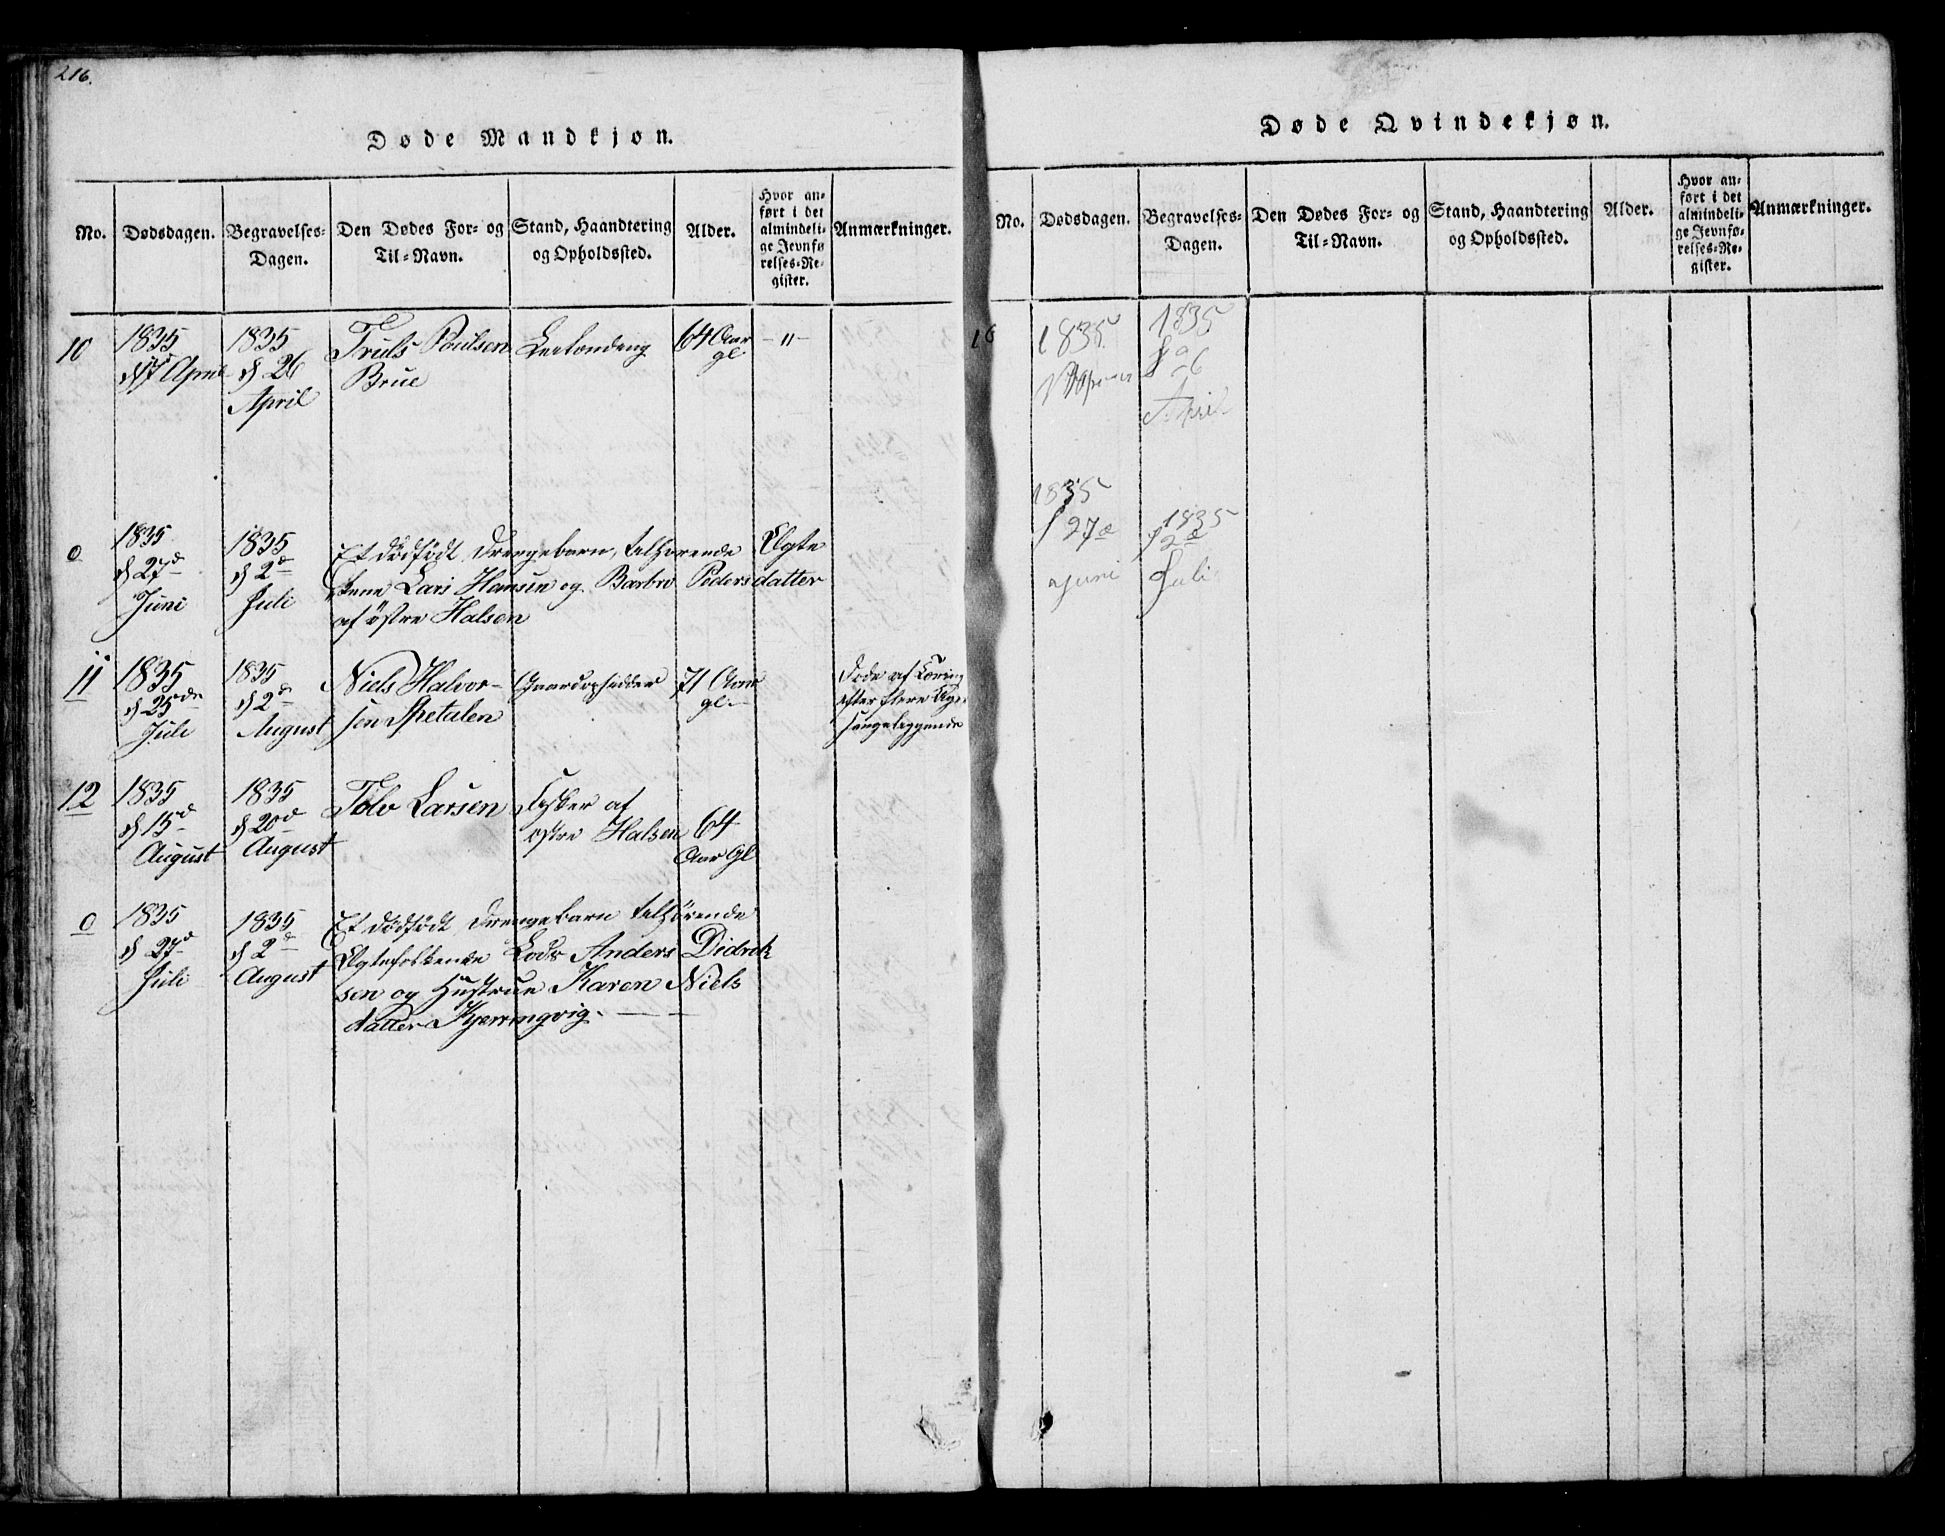 216.
Døde Mandkjøn.
No. Dødsdagen. Begravelses-Dagen. Den Dødes For- og Til-Navn. Stand, Haandtering og Opholdssted. Alder. Hvor anført i det almindelige Jevnførelses-Register. Anmærkninger.
10 1835 1835 Truls Poulsen 64 Aar – " –
d 17 April d 26 Brue gl
April
0 1835 1835 Et dödfödt Drengebarn, tilhørende Ægte
d 27de d 2de Lars Hansen og Barbro Pedersdatter
Juni Juli af östre Halsen
11 1835 1835 Niels Halvor- 71 Aar Døde af Tæring
d 25de d 2de sen Spetalen gl. efter flere
Juli August sengeliggende
12 1835 1835 Tolv Larsen Fisker af
d 15de d 20de østre Halsen 64
August August Aar Gl
0 1835 1835 Et dödfödt Drengebarn tilhørende
d 27de d 2de Ægtefolkene Lods Anders Didrik
Juli August sen og Hustrue Karen Niels
datter Kjærringvig. –
Døde Qvindekjøn.
No. Dødsdagen. Begravelses-Dagen. Den Dødes For- og Til-Navn. Stand, Haandtering og Opholdssted. Alder. Hvor anført i det almindelige Jevnførelses-Register. Anmærkninger.
1835 1835
April
1835
27de 1835
Juni 2de
Juli